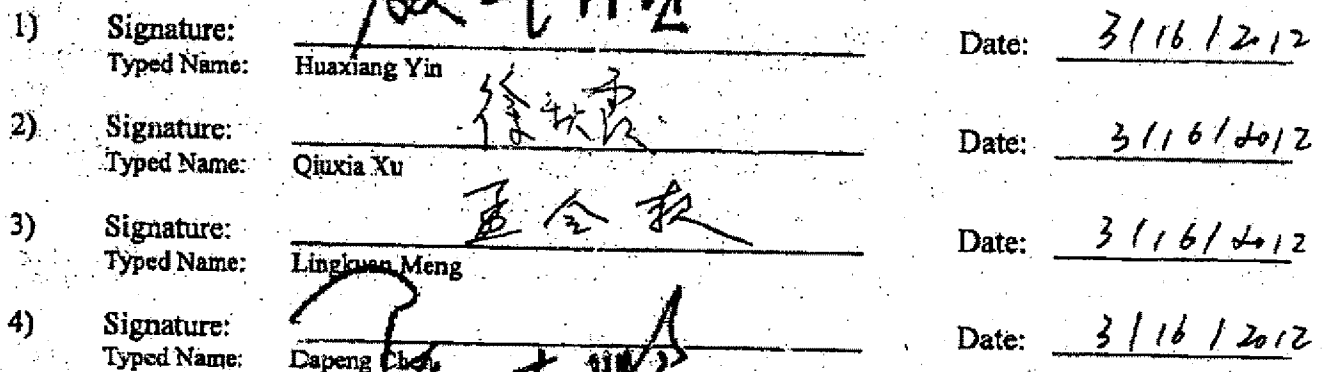 1) Signature: Date: 3/16/2012
Typed Name: Huaxiang Yin
2) Signature: 徐秋霞 Date: 3/16/2012
Typed Name: Qiuxia Xu
3) Signature: 孟令款 Date: 3/16/2012
Typed Name: Lingkuan Meng
4) Signature: Date: 3/16/2012
Typed Name: Dapeng Chen